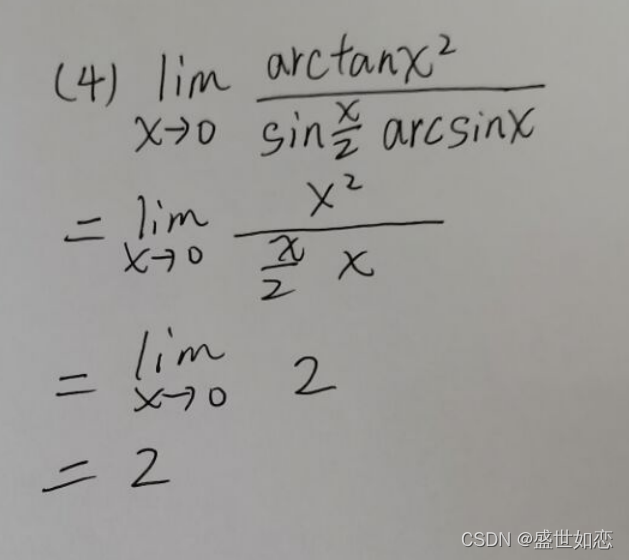 (4) lim x→0 arctanx² / sin x/2 arcsinx
= lim x→0 x² / x/2 x
= lim x→0 2
= 2
CSDN @盛世如恋